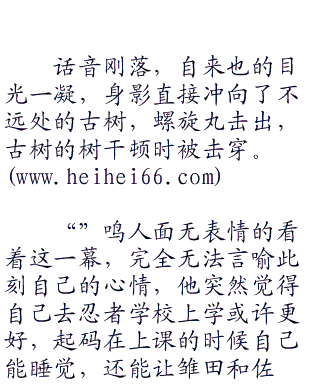 话音刚落，自来也的目
光一凝，身影直接冲向了不
远处的古树，螺旋丸击出，
古树的树干顿时被击穿。
(www.heihei66.com)
“”鸣人面无表情的看
着这一幕，完全无法言喻此
刻自己的心情，他突然觉得
自己去忍者学校上学或许更
好，起码在上课的时候自己
能睡觉，还能让雏田和佐